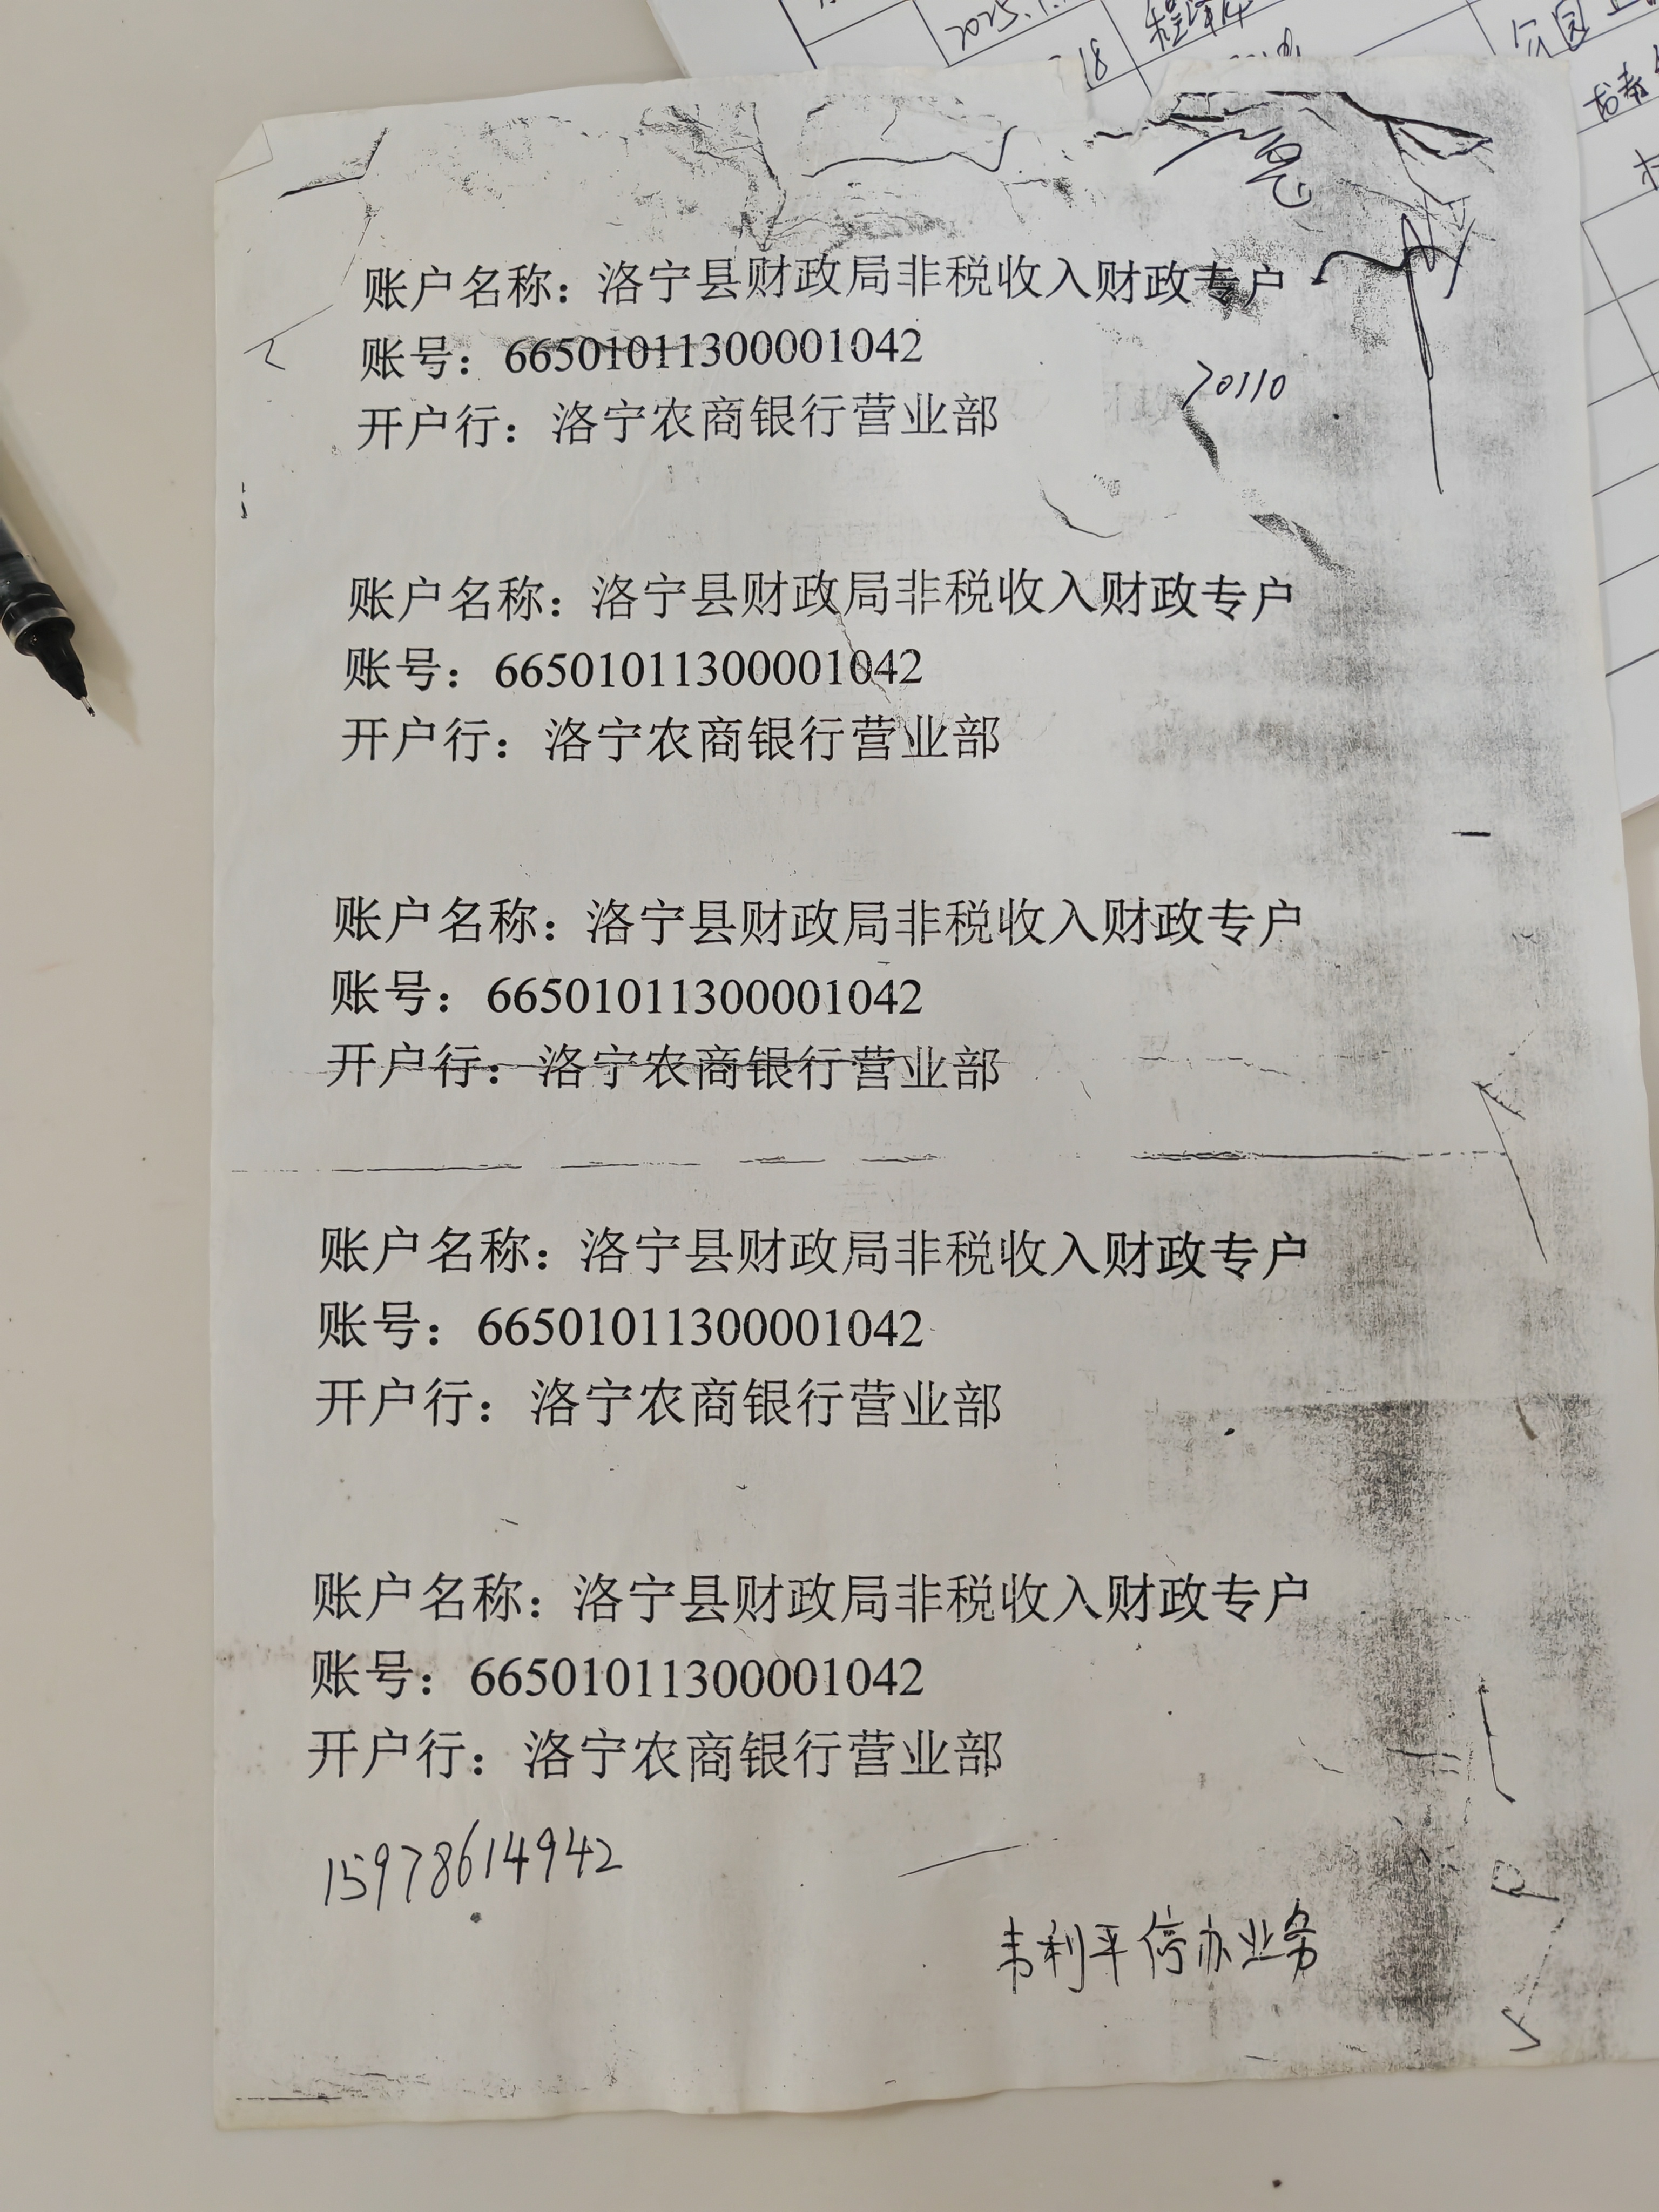 2025.1.
18
账户名称：洛宁县财政局非税收入财政专户
账号：66501011300001042
70110
开户行：洛宁农商银行营业部
账户名称：洛宁县财政局非税收入财政专户
账号：66501011300001042
开户行：洛宁农商银行营业部
账户名称：洛宁县财政局非税收入财政专户
账号：66501011300001042
开户行：洛宁农商银行营业部
账户名称：洛宁县财政局非税收入财政专户
账号：66501011300001042
开户行：洛宁农商银行营业部
账户名称：洛宁县财政局非税收入财政专户
账号：66501011300001042
开户行：洛宁农商银行营业部
15978614942
韦利平停办业务